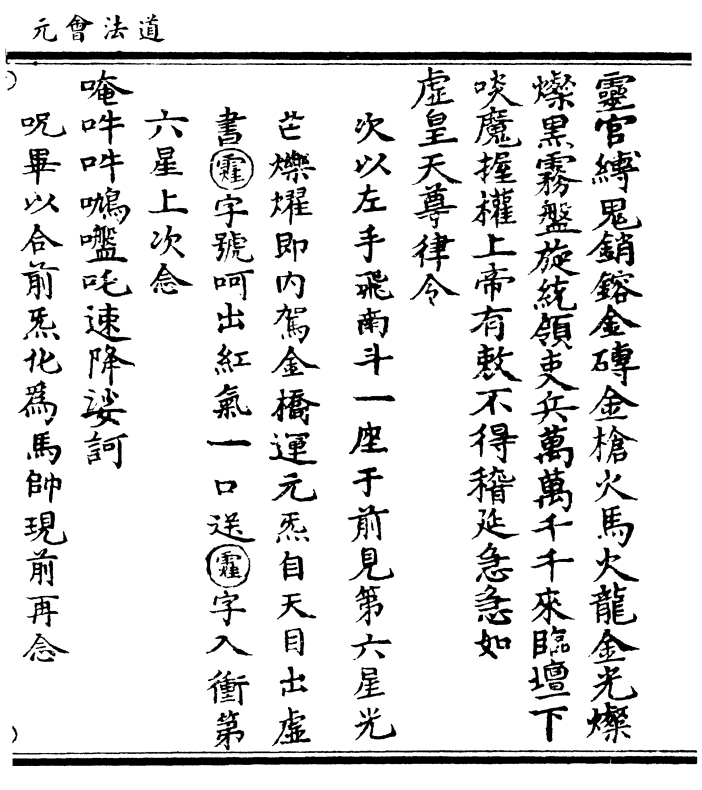 道法會元
靈官縛鬼銷鎔金磚金槍火馬火龍金光燦
燦黑霧盤旋統領吏兵萬萬千千來臨壇下
啖魔握權上帝有敕不得稽延急急如
虛皇天尊律令
次以左手飛南斗一座于前見第六星光
芒爍燿即内駕金橋運元炁自天目出虛
書霳字號呵出紅氣一口送霳字入衝第
六星上次念
唵吽吽 速降娑訶
呪畢以合前炁化爲馬帥現前再念